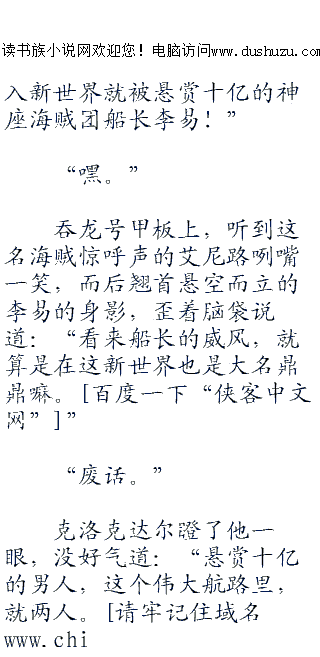 读书族小说网欢迎您！电脑访问www.dushuzu.com
入新世界就被悬赏十亿的神
座海贼团船长李易！”
“嘿。”
吞龙号甲板上，听到这
名海贼惊呼声的艾尼路咧嘴
一笑，而后翘首悬空而立的
李易的身影，歪着脑袋说
道：“看来船长的威风，就
算是在这新世界也是大名鼎
鼎嘛。[百度一下“侠客中文
网”]”
“废话。”
克洛克达尔瞪了他一
眼，没好气道：“悬赏十亿
的男人，这个伟大航路里，
就两人。[请牢记住域名
www.chi